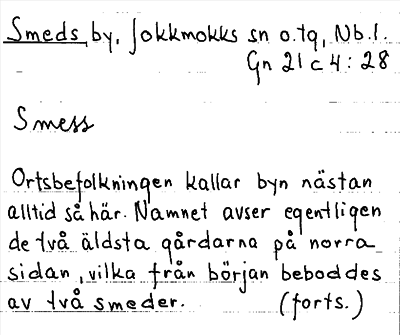 Smeds by, Jokkmokks sn o. tg, Nb. l.
Gn 21 c 4 : 28
Smess
Ortsbefolkningen kallar byn nästan
alltid så här. Namnet avser egentligen
de två äldsta gårdarna på norra
sidan, vilka från början beboddes
av två smeder. (forts.)